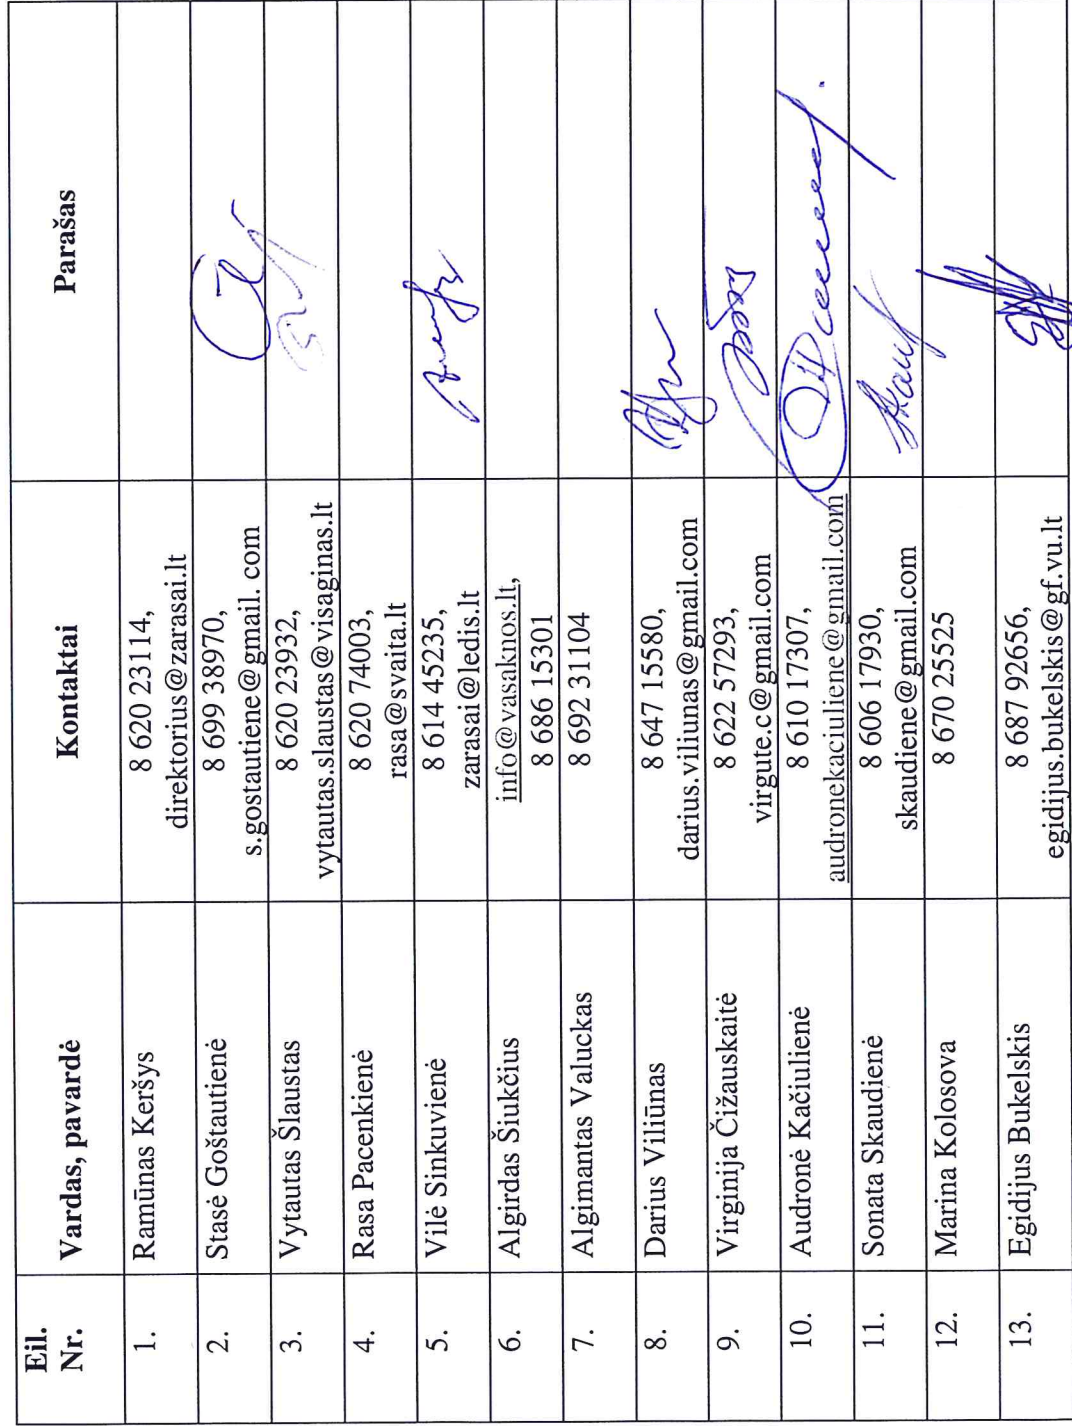 Eil. Nr. Vardas, pavardė Kontaktai Parašas
1. Ramūnas Keršys 8 620 23114,
direktorius@zarasai.lt
2. Stasė Goštautienė 8 699 38970,
s.gostautiene@gmail. com
3. Vytautas Šlaustas 8 620 23932,
vytautas.slaustas@visaginas.lt
4. Rasa Pacenkienė 8 620 74003,
rasa@svaita.lt
5. Vilė Sinkuvienė 8 614 45235,
zarasai@ledis.lt
6. Algirdas Šiukčius info@vasaknos.lt,
8 686 15301
7. Algimantas Valuckas 8 692 31104
8. Darius Viliūnas 8 647 15580,
darius.viliunas@gmail.com
9. Virginija Čižauskaitė 8 622 57293,
virgute.c@gmail.com
10. Audronė Kačiulienė 8 610 17307,
audronekaciuliene@gmail.com
11. Sonata Skaudienė 8 606 17930,
skaudiene@gmail.com
12. Marina Kolosova 8 670 25525
13. Egidijus Bukelskis 8 687 92656,
egidijus.bukelskis@gf.vu.lt